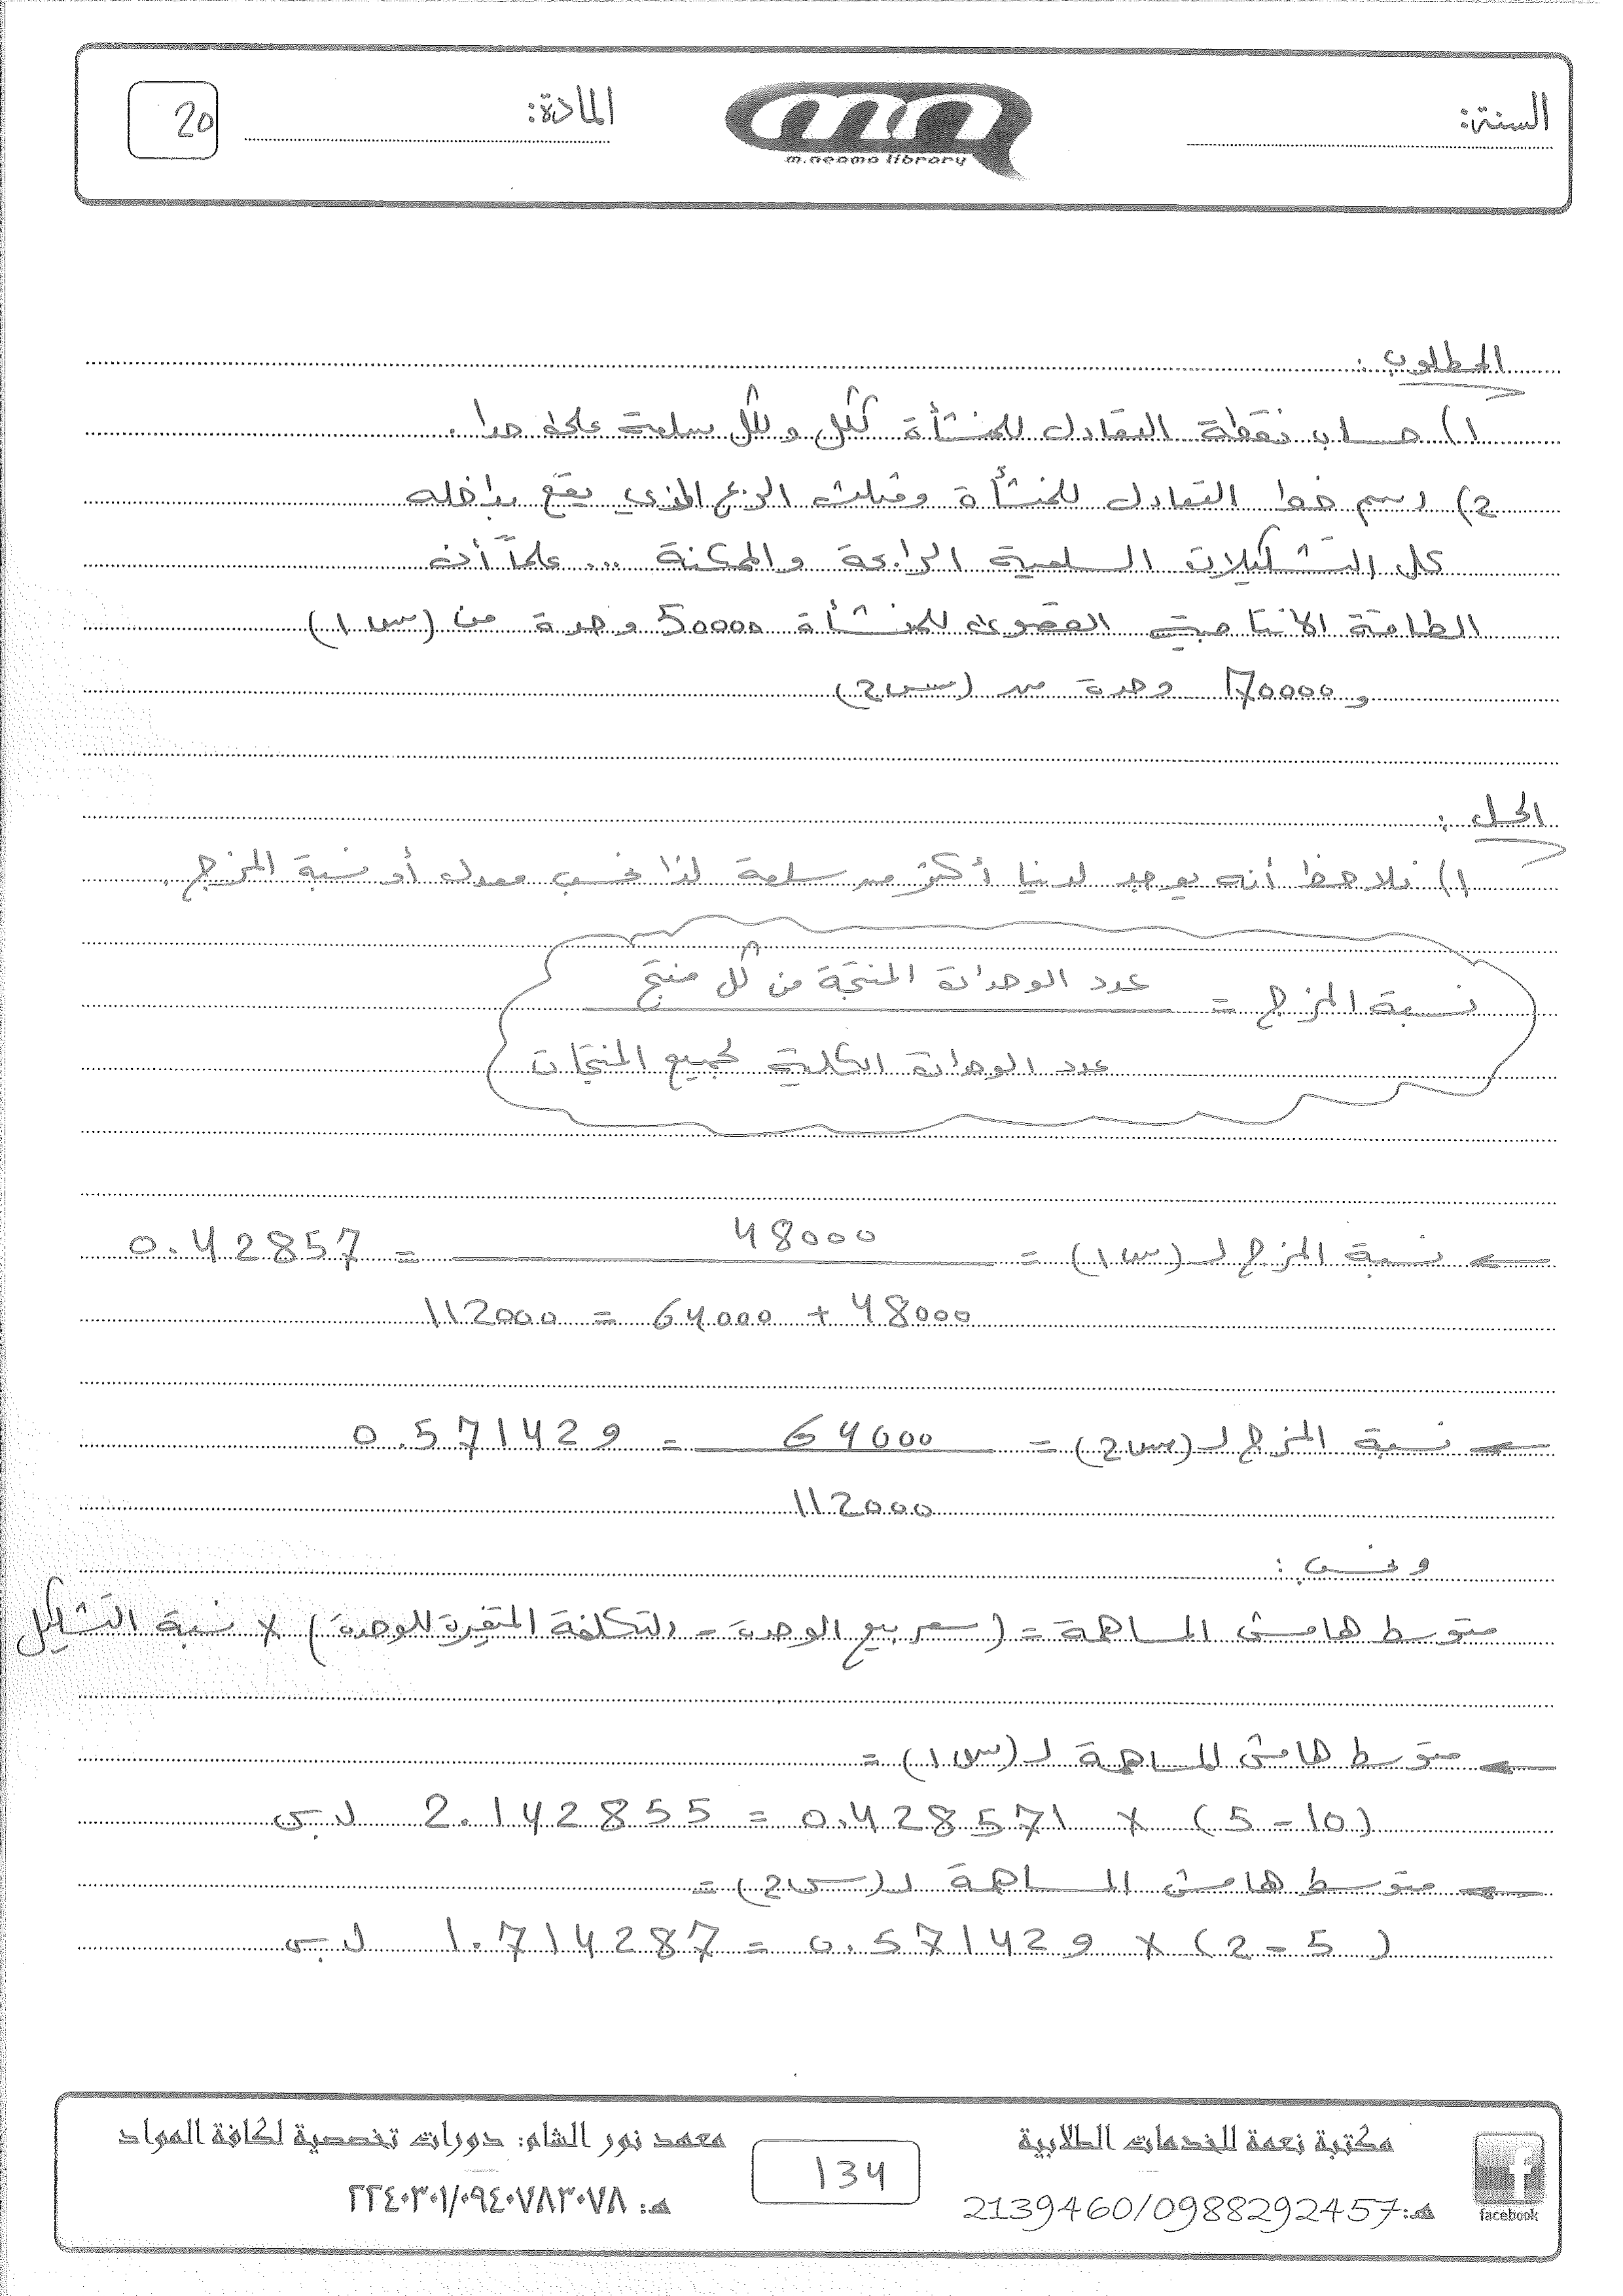 السنة:
m.neama library
المادة:
20
المطلوب:
1) حساب نقطة التعادل للمنشأة ككل ولكل سلعة على حدا.
2) رسم خط التعادل للمنشأة ومثلث الربح الذي يقع بداخله
كل التشكيلات السلعية الرابحة والممكنة ... علماً أن
الطاقة الانتاجية القصوى للمنشأة 50000 وحدة من (س1)
و 70000 وحدة من (س2)
الحل:
1) نلاحظ أنه يوجد لدينا أكثر من سلعة لذا نحسب معدل أو نسبة المزج.
نسبة المزج = عدد الوحدات المنتجة من كل منتج
عدد الوحدات الكلية لجميع المنتجات
← نسبة المزج لـ (س1) = 48000 = 0.42857
48000 + 64000 = 112000
← نسبة المزج لـ (س2) = 64000 = 0.571429
112000
ونحسب:
متوسط هامش المساهمة = (سعر بيع الوحدة - التكلفة المتغيرة للوحدة) × نسبة التشكيل
← متوسط هامش المساهمة لـ (س1) =
(10 - 5) × 0.428571 = 2.142855 ل.س
← متوسط هامش المساهمة لـ (س2) =
(5 - 2) × 0.571429 = 1.714287 ل.س
facebook
مكتبة نعمة للخدمات الطلابية
هـ: 2139460/0988292457
134
معهد نور الشام: دورات تخصصية لكافة المواد
هـ: ٢٢٤٠٣٠١/٠٩٤٠٧٨٣٠٧٨